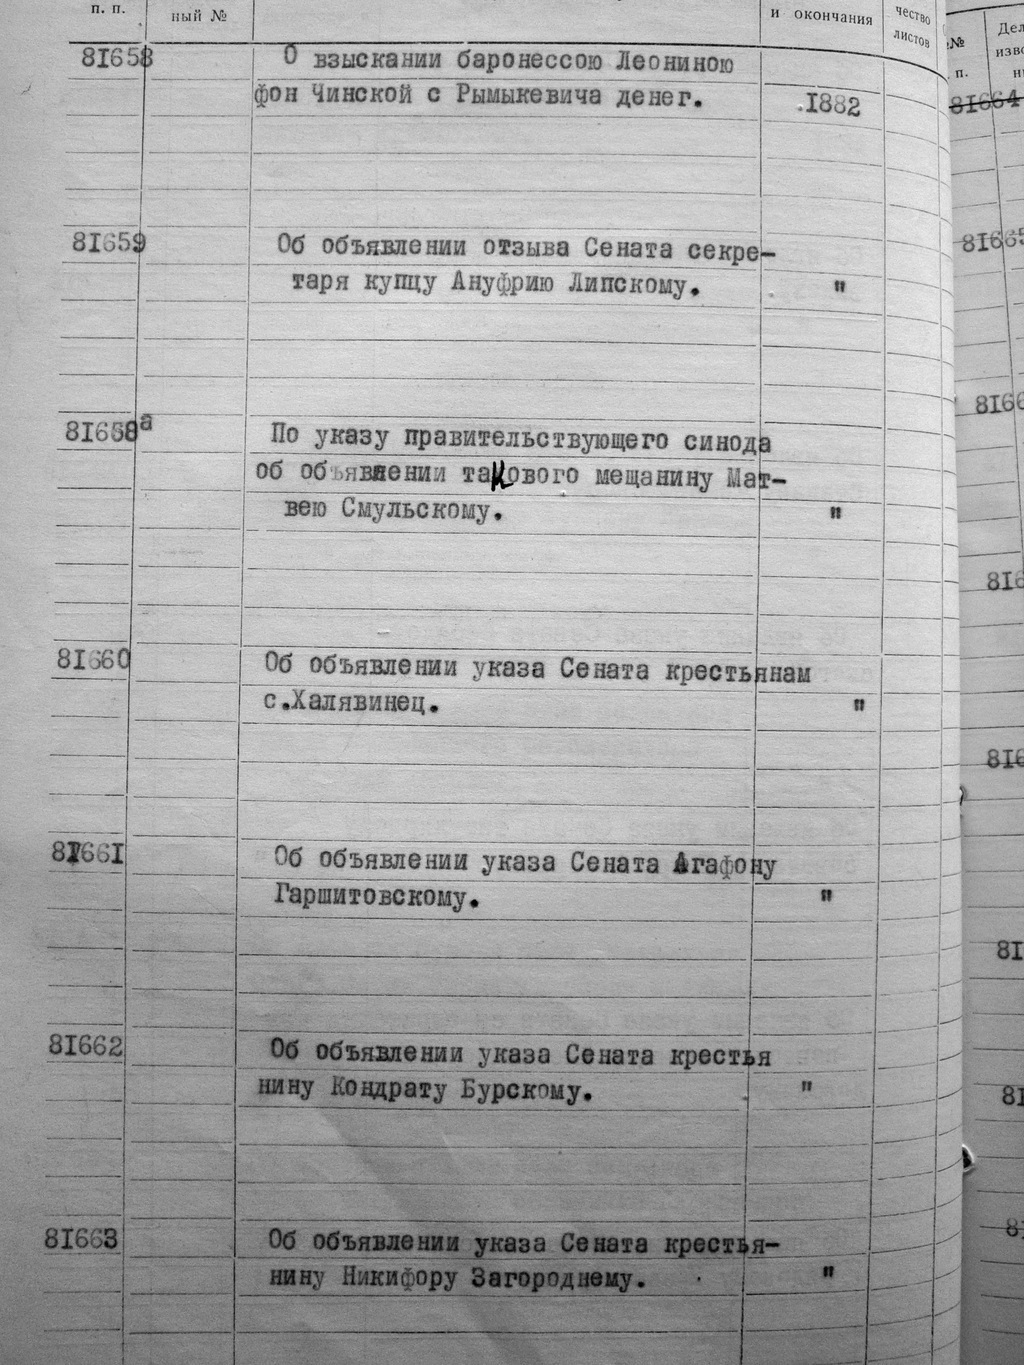 п. п.
ный №
и окончания
чество
листов
81658
О взыскании баронессою Леониною
фон Чинской с Рымыкевича денег.
1882
81659
Об объявлении отзыва Сената секре-
таря купцу Ануфрию Липскому.
"
81658а
По указу правительствующего синода
об объявлении такового мещанину Мат-
вею Смульскому.
"
81660
Об объявлении указа Сената крестьянам
с.Халявинец.
"
81661
Об объявлении указа Сената Агафону
Гаршитовскому.
"
81662
Об объявлении указа Сената крестья
нину Кондрату Бурскому.
"
81663
Об объявлении указа Сената крестья-
нину Никифору Загороднему.
"
№
п.
81664
81665